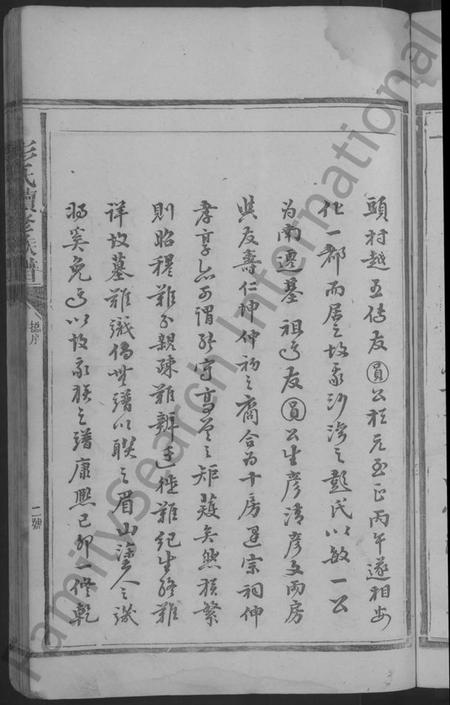 頭村越五傳友圓公於元至正丙午遂相安
化一郡而居之故我沙灣之彭氏以敏一公
為南遷基祖焉友圓公生彥清彥文兩房
與友壽仁仲仲初之裔合為十房建宗祠伸
孝享亦可謂能守高曾之矩矱矣然族繁
則昭穆難分親疎難辨遷徙難紀生終難
詳故墓難識倘無譜以聯之眉山塗人之譏
將奚免焉以故我族之譜康熙己卯一修乾
彭氏續修族譜
序
二號
FamilySearch International